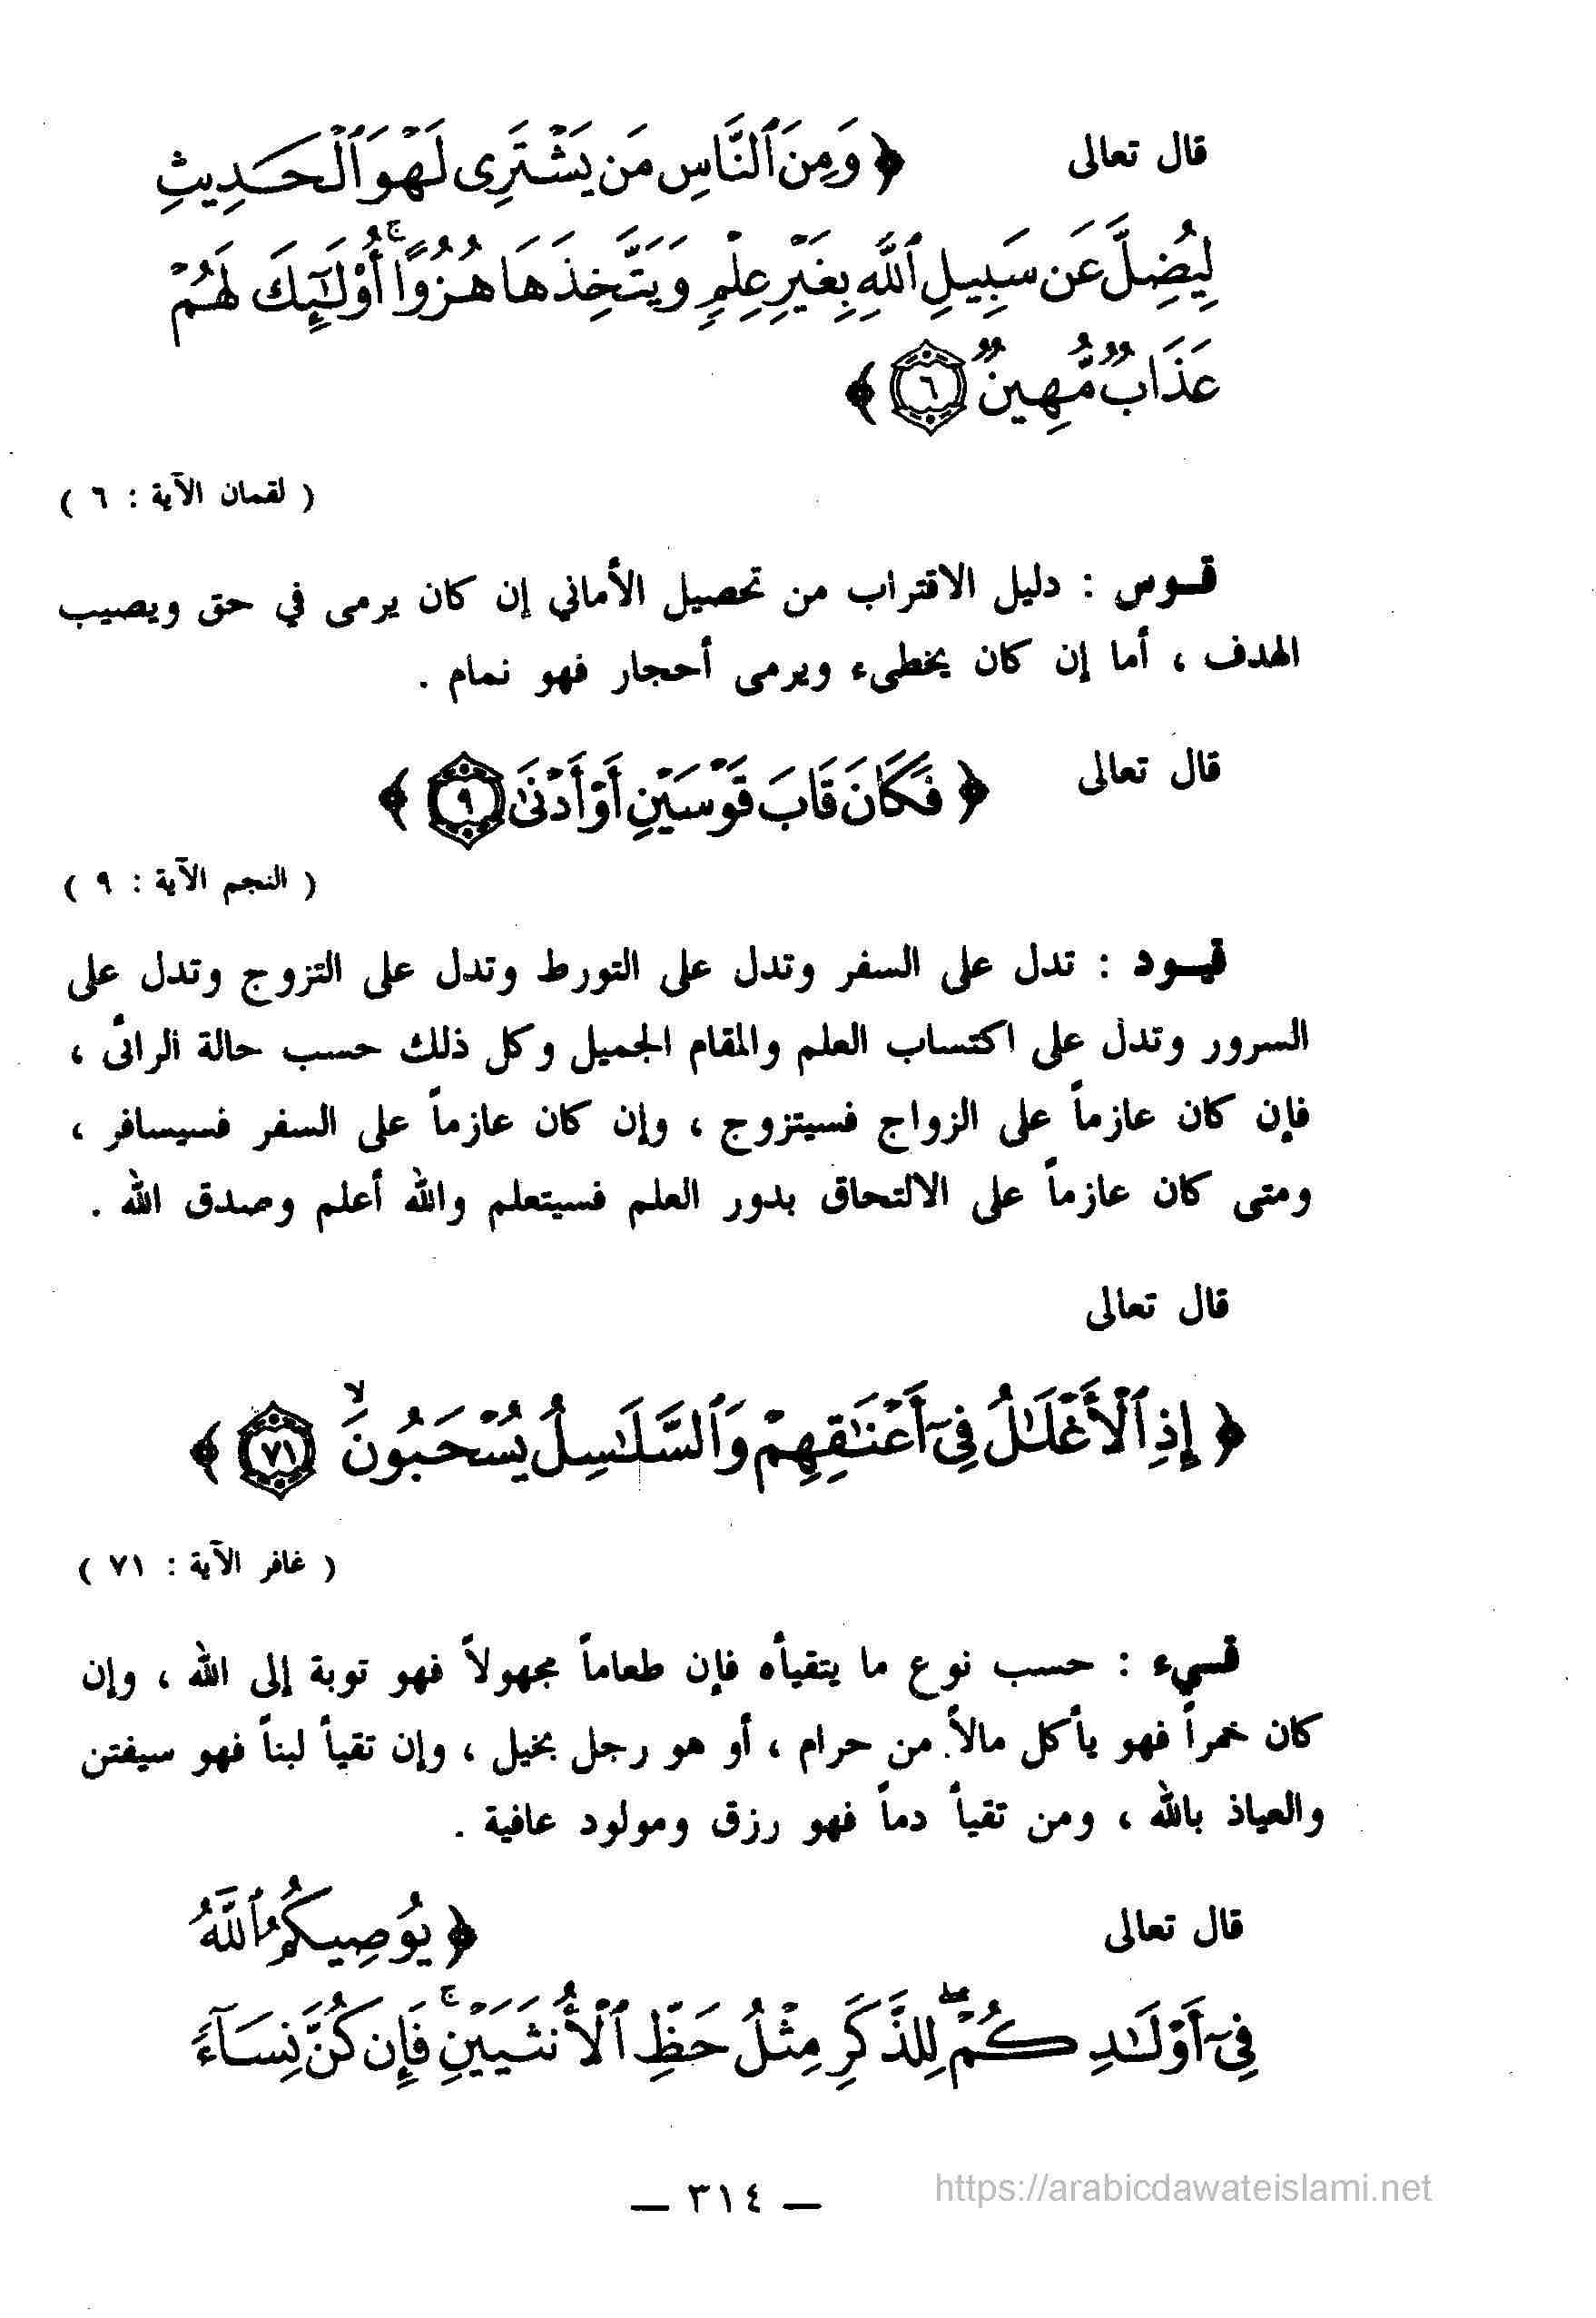 قال تعالى ﴿ وَمِنَ ٱلنَّاسِ مَن يَشْتَرِى لَهْوَ ٱلْحَدِيثِ
لِيُضِلَّ عَن سَبِيلِ ٱللَّهِ بِغَيْرِ عِلْمٍ وَيَتَّخِذَهَا هُزُوًا ۚ أُو۟لَـٰٓئِكَ لَهُمْ
عَذَابٌ مُّهِينٌ ٦ ﴾
( لقمان الآية : ٦ )
قـوس : دليل الاقتراب من تحصيل الأماني إن كان يرمى في حق ويصيب
الهدف ، أما إن كان يخطىء ويرمى أحجار فهو نمام .
قال تعالى ﴿ فَكَانَ قَابَ قَوْسَيْنِ أَوْ أَدْنَىٰ ٩ ﴾
( النجم الآية : ٩ )
قيـود : تدل على السفر وتدل على التورط وتدل على التزوج وتدل على
السرور وتدل على اكتساب العلم والمقام الجميل وكل ذلك حسب حالة الرائى ،
فإن كان عازماً على الزواج فسيتزوج ، وإن كان عازماً على السفر فسيسافر ،
ومتى كان عازماً على الالتحاق بدور العلم فسيتعلم والله أعلم وصدق الله .
قال تعالى
﴿ إِذِ ٱلْأَغْلَـٰلُ فِىٓ أَعْنَـٰقِهِمْ وَٱلسَّلَـٰسِلُ يُسْحَبُونَ ۙ ٧١ ﴾
( غافر الآية : ٧١ )
قـيء : حسب نوع ما يتقيأه فإن طعاماً مجهولاً فهو توبة إلى الله ، وإن
كان خمراً فهو يأكل مالاً من حرام ، أو هو رجل بخيل ، وإن تقيأ لبناً فهو سيفتن
والعياذ بالله ، ومن تقيأ دماً فهو رزق ومولود عافية .
قال تعالى ﴿ يُوصِيكُمُ ٱللَّهُ
فِىٓ أَوْلَـٰدِكُمْ ۖ لِلذَّكَرِ مِثْلُ حَظِّ ٱلْأُنثَيَيْنِ ۚ فَإِن كُنَّ نِسَآءً
— ٣١٤ —
https://arabicdawateislami.net